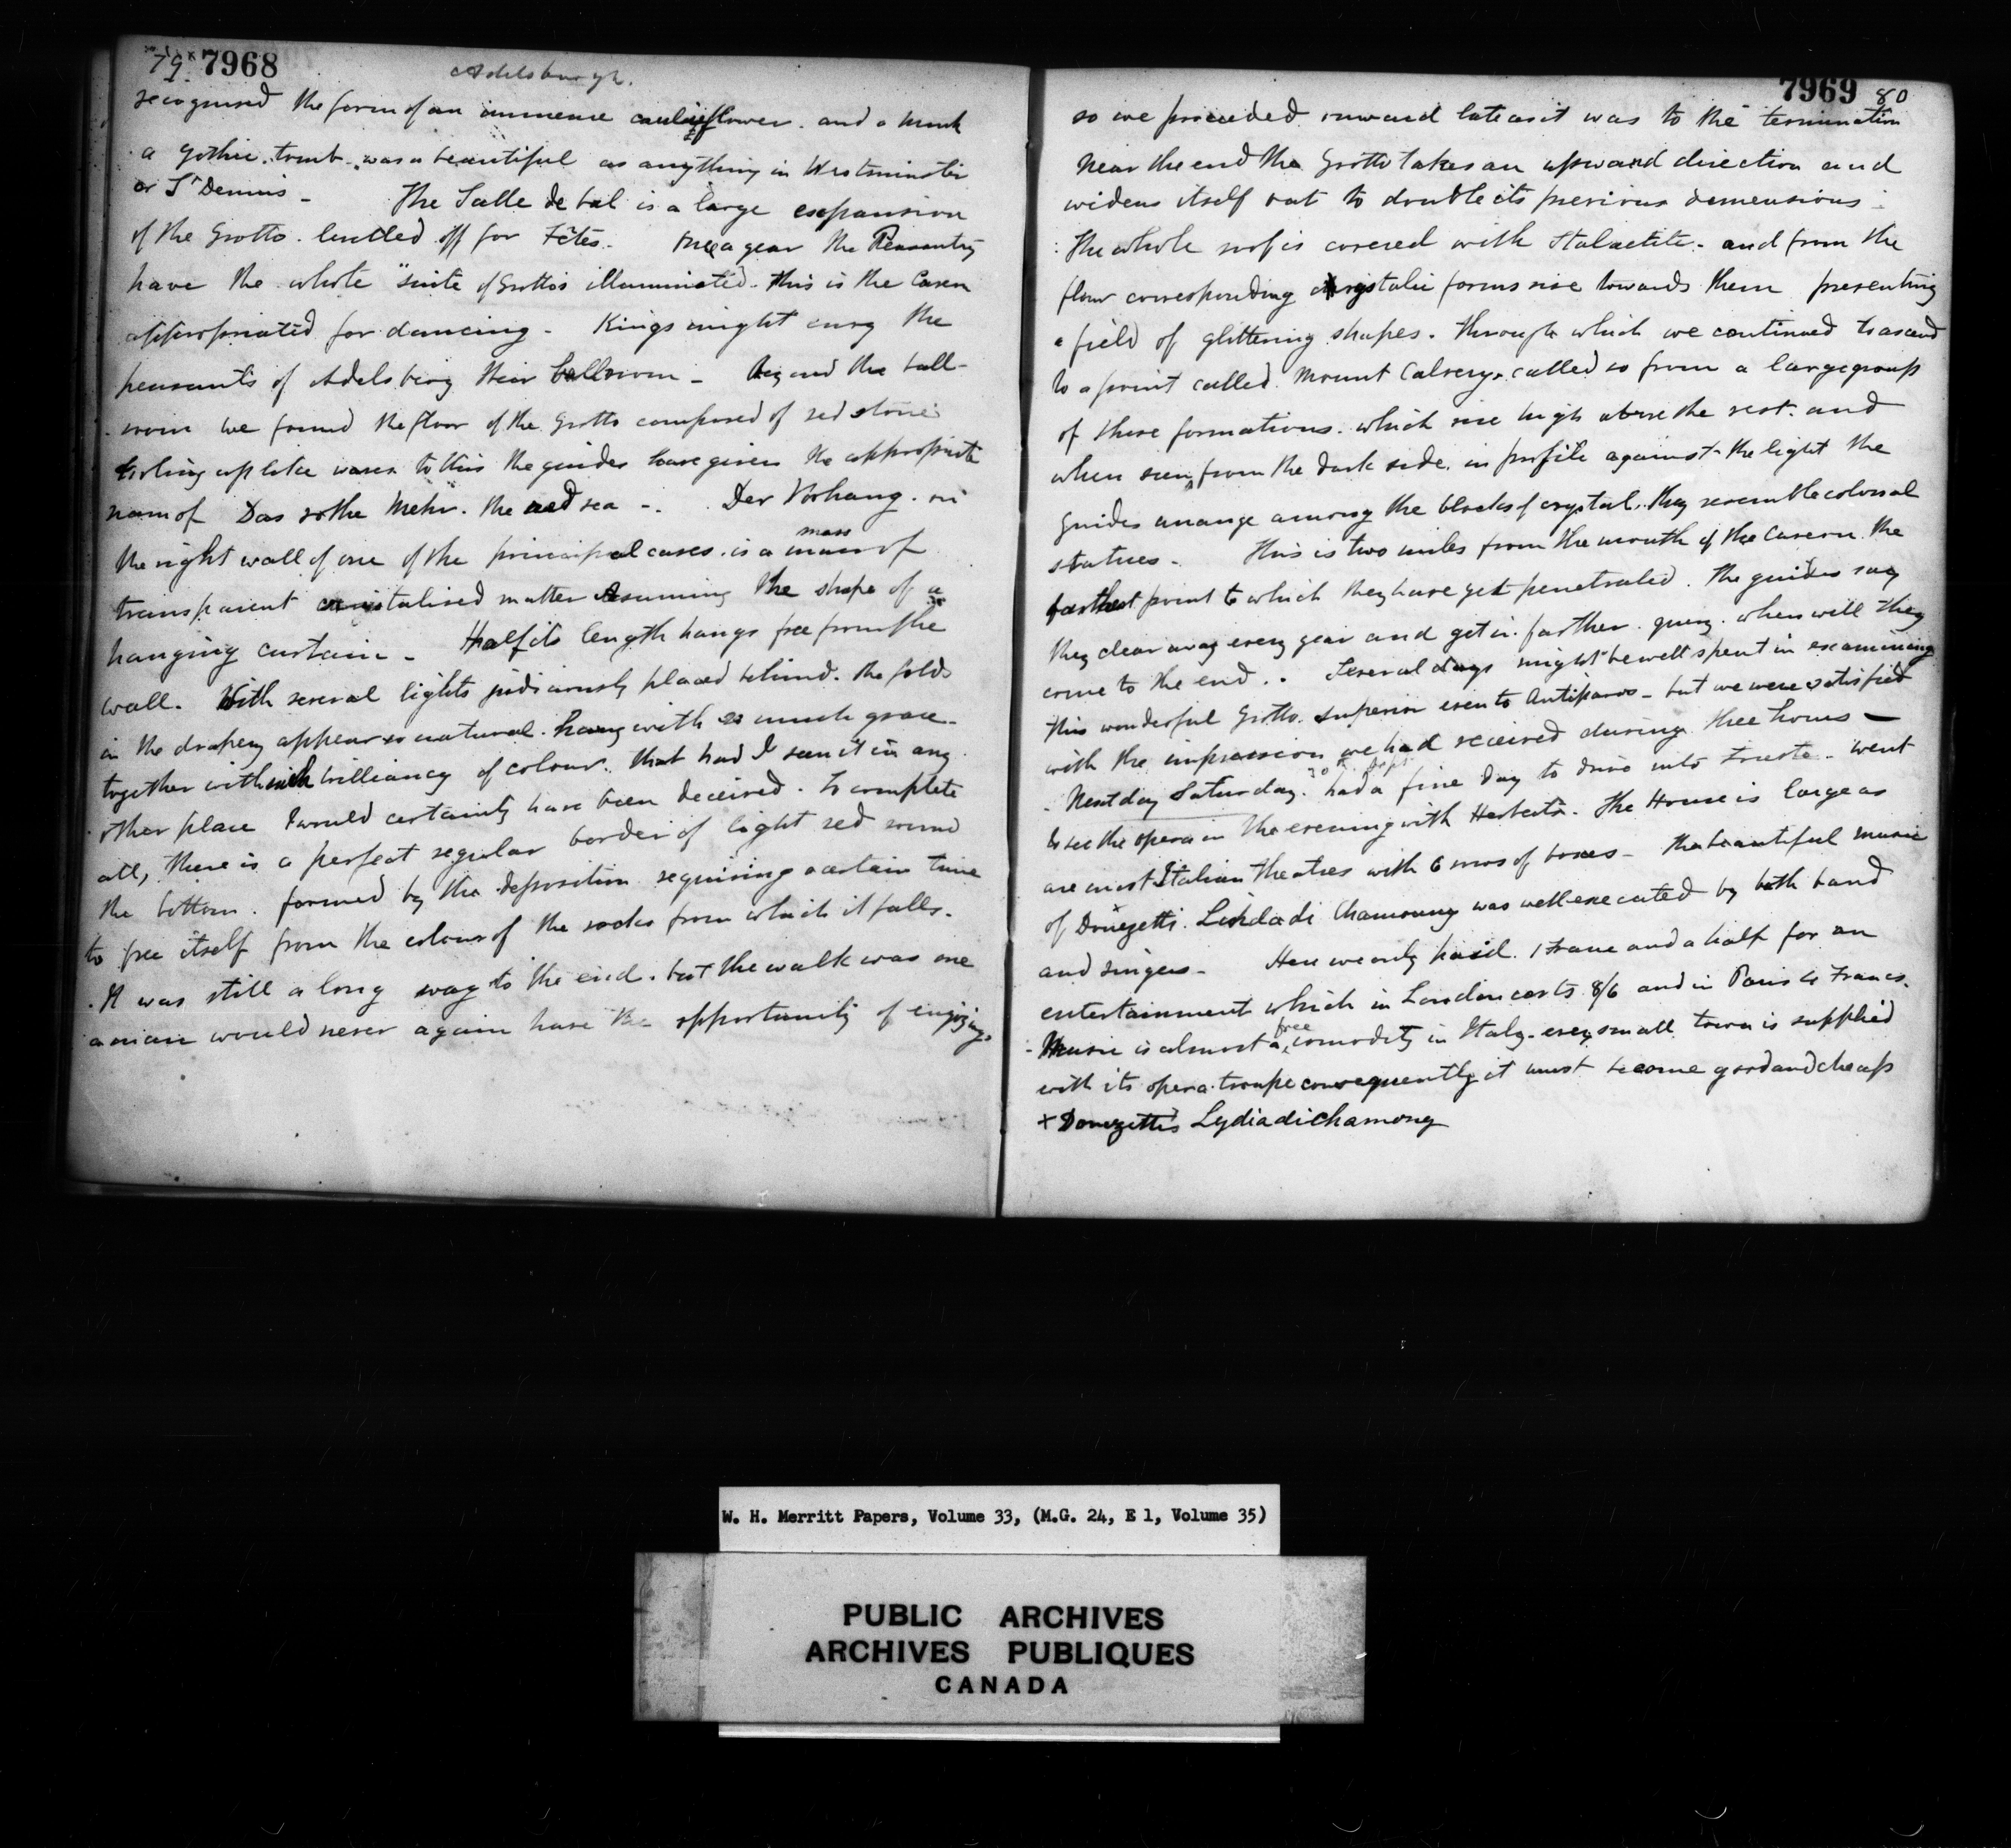 79. 7968
Adelsburgh.
recognised the form of an immense cauliflower. and a
a Gothic. tomb. was a beautiful as anything in Westminster
or St Dennis - The Salle de bal is a large expansion
of the Grotto. levelled off for Fêtes. Once a year the Peasantry
have the whole "suite of Grottos illuminated. this is the Cavern
appropriated for dancing - Kings might envy the
peasants of Adelsberg their ballroom - Beyond the ball-
room we found the floor of the Grotto composed of red stone
curling up like waves to this the guides have given the appropriate
name of Das rothe Mehr. the red sea -. Der Vorhang. on
the right wall of one of the principal caves. is a mass of
transparent crystalised matter Assuming the shape of a
hanging curtain - Half its length hangs free from the
wall. With several lights judiciously placed behind. the folds
in the drapery appear so natural. hang with so much grace -
together with such brilliancy of colour. that had I seen it in any
other place I would certainly have been deceived. to complete
all, there is a perfect regular border of light red round
the bottom. formed by the deposition requiring a certain time
to free itself from the colour of the rocks from which it falls.
. It was still a long way to the end. but the walk was one
a man would never again have the opportunity of enjoying.
7969 80
so we proceeded onward late as it was to the termination
Near the end the Grotto takes an upward direction and
widens itself out to double its previous demensions -
The whole roof is covered with Stalactite - and from the
floor corresponding crystalic forms rise towards them presenting
a field of glittering shapes. through which we continued to ascend
to a point called. Mount Calvery. called so from a large group
of these formations. which rise high above the rest. and
when seen from the dark side. in profile against the light the
Guides arrange among the blocks of crystal. they resemble colossal
statues - This is two miles from the mouth of the Cavern. the
farthest point to which they have yet penetrated. The guides say
they clear away every year and get in farther. query. when will they
come to the end.. Several days might be well spent in examining
this wonderful Grotto. superior even to Antiparos - but we were satisfied
with the impression we had received during three hours -
. Next day Saturday. 30th Sept. had a fine day to drive into Trieste - went
to see the opera in the evening with Herberts. The House is large as
are most Italian theatres with 6 rows of boxes - The beautiful music
of Donezetti. Linda di Chamouny was well executed by both band
and singers - Here we only paid. 1 Franc and a half for an
entertainment which in London costs 8/6 and in Paris 4 Francs.
- Music is almost a free comodity in Italy - every small town is supplied
with its opera. troupe consequently it must become good and cheap
x Donezettis Lydia di chamony
W. H. Merritt Papers, Volume 33, (M.G. 24, E 1, Volume 35)
PUBLIC ARCHIVES
ARCHIVES PUBLIQUES
CANADA